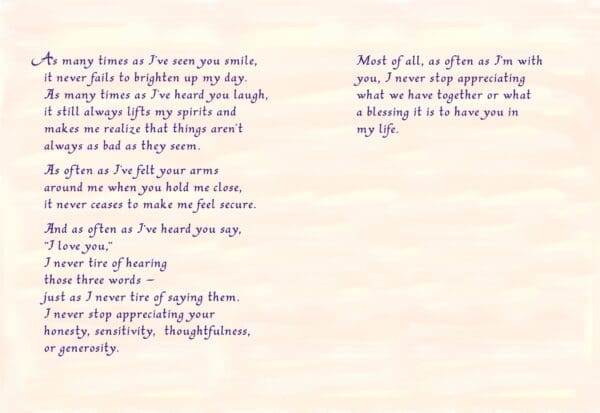 As many times as I've seen you smile,
it never fails to brighten up my day.
As many times as I've heard you laugh,
it still always lifts my spirits and
makes me realize that things aren't
always as bad as they seem.
As often as I've felt your arms
around me when you hold me close,
it never ceases to make me feel secure.
And as often as I've heard you say,
"I love you,"
I never tire of hearing
those three words –
just as I never tire of saying them.
I never stop appreciating your
honesty, sensitivity, thoughtfulness,
or generosity.
Most of all, as often as I'm with
you, I never stop appreciating
what we have together or what
a blessing it is to have you in
my life.